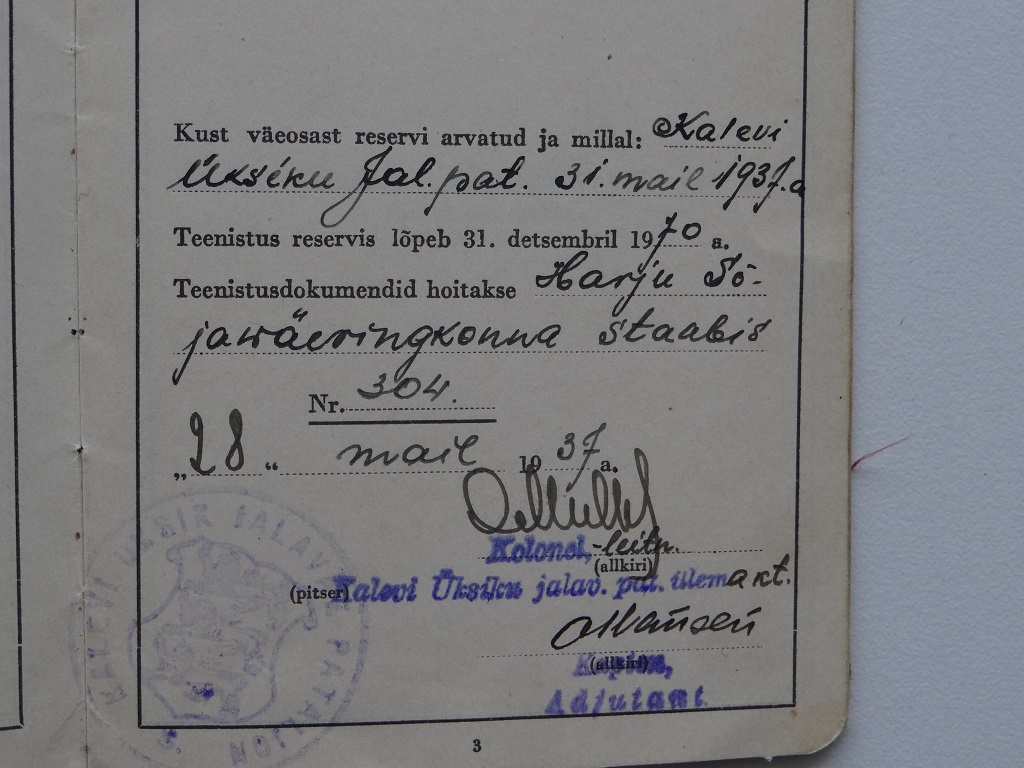 Kust väeosast reservi arvatud ja millal: Kalevi
Üksiku Jal. pat. 31. mail 1937. a
Teenistus reservis lõpeb 31. detsembril 1970 a.
Teenistusdokumendid hoitakse Harju Sõ-
jawäeringkonna staabis
Nr. 304.
„28“ mail 1937 a.
Kolonel,-leitn.
(allkiri)
(pitser) Kalevi Üksiku jalav. pat. ülema kt.
(allkiri)
Kapten,
Adjutant
KALEVI ÜKSIK JALAVÄE PATALJON
3